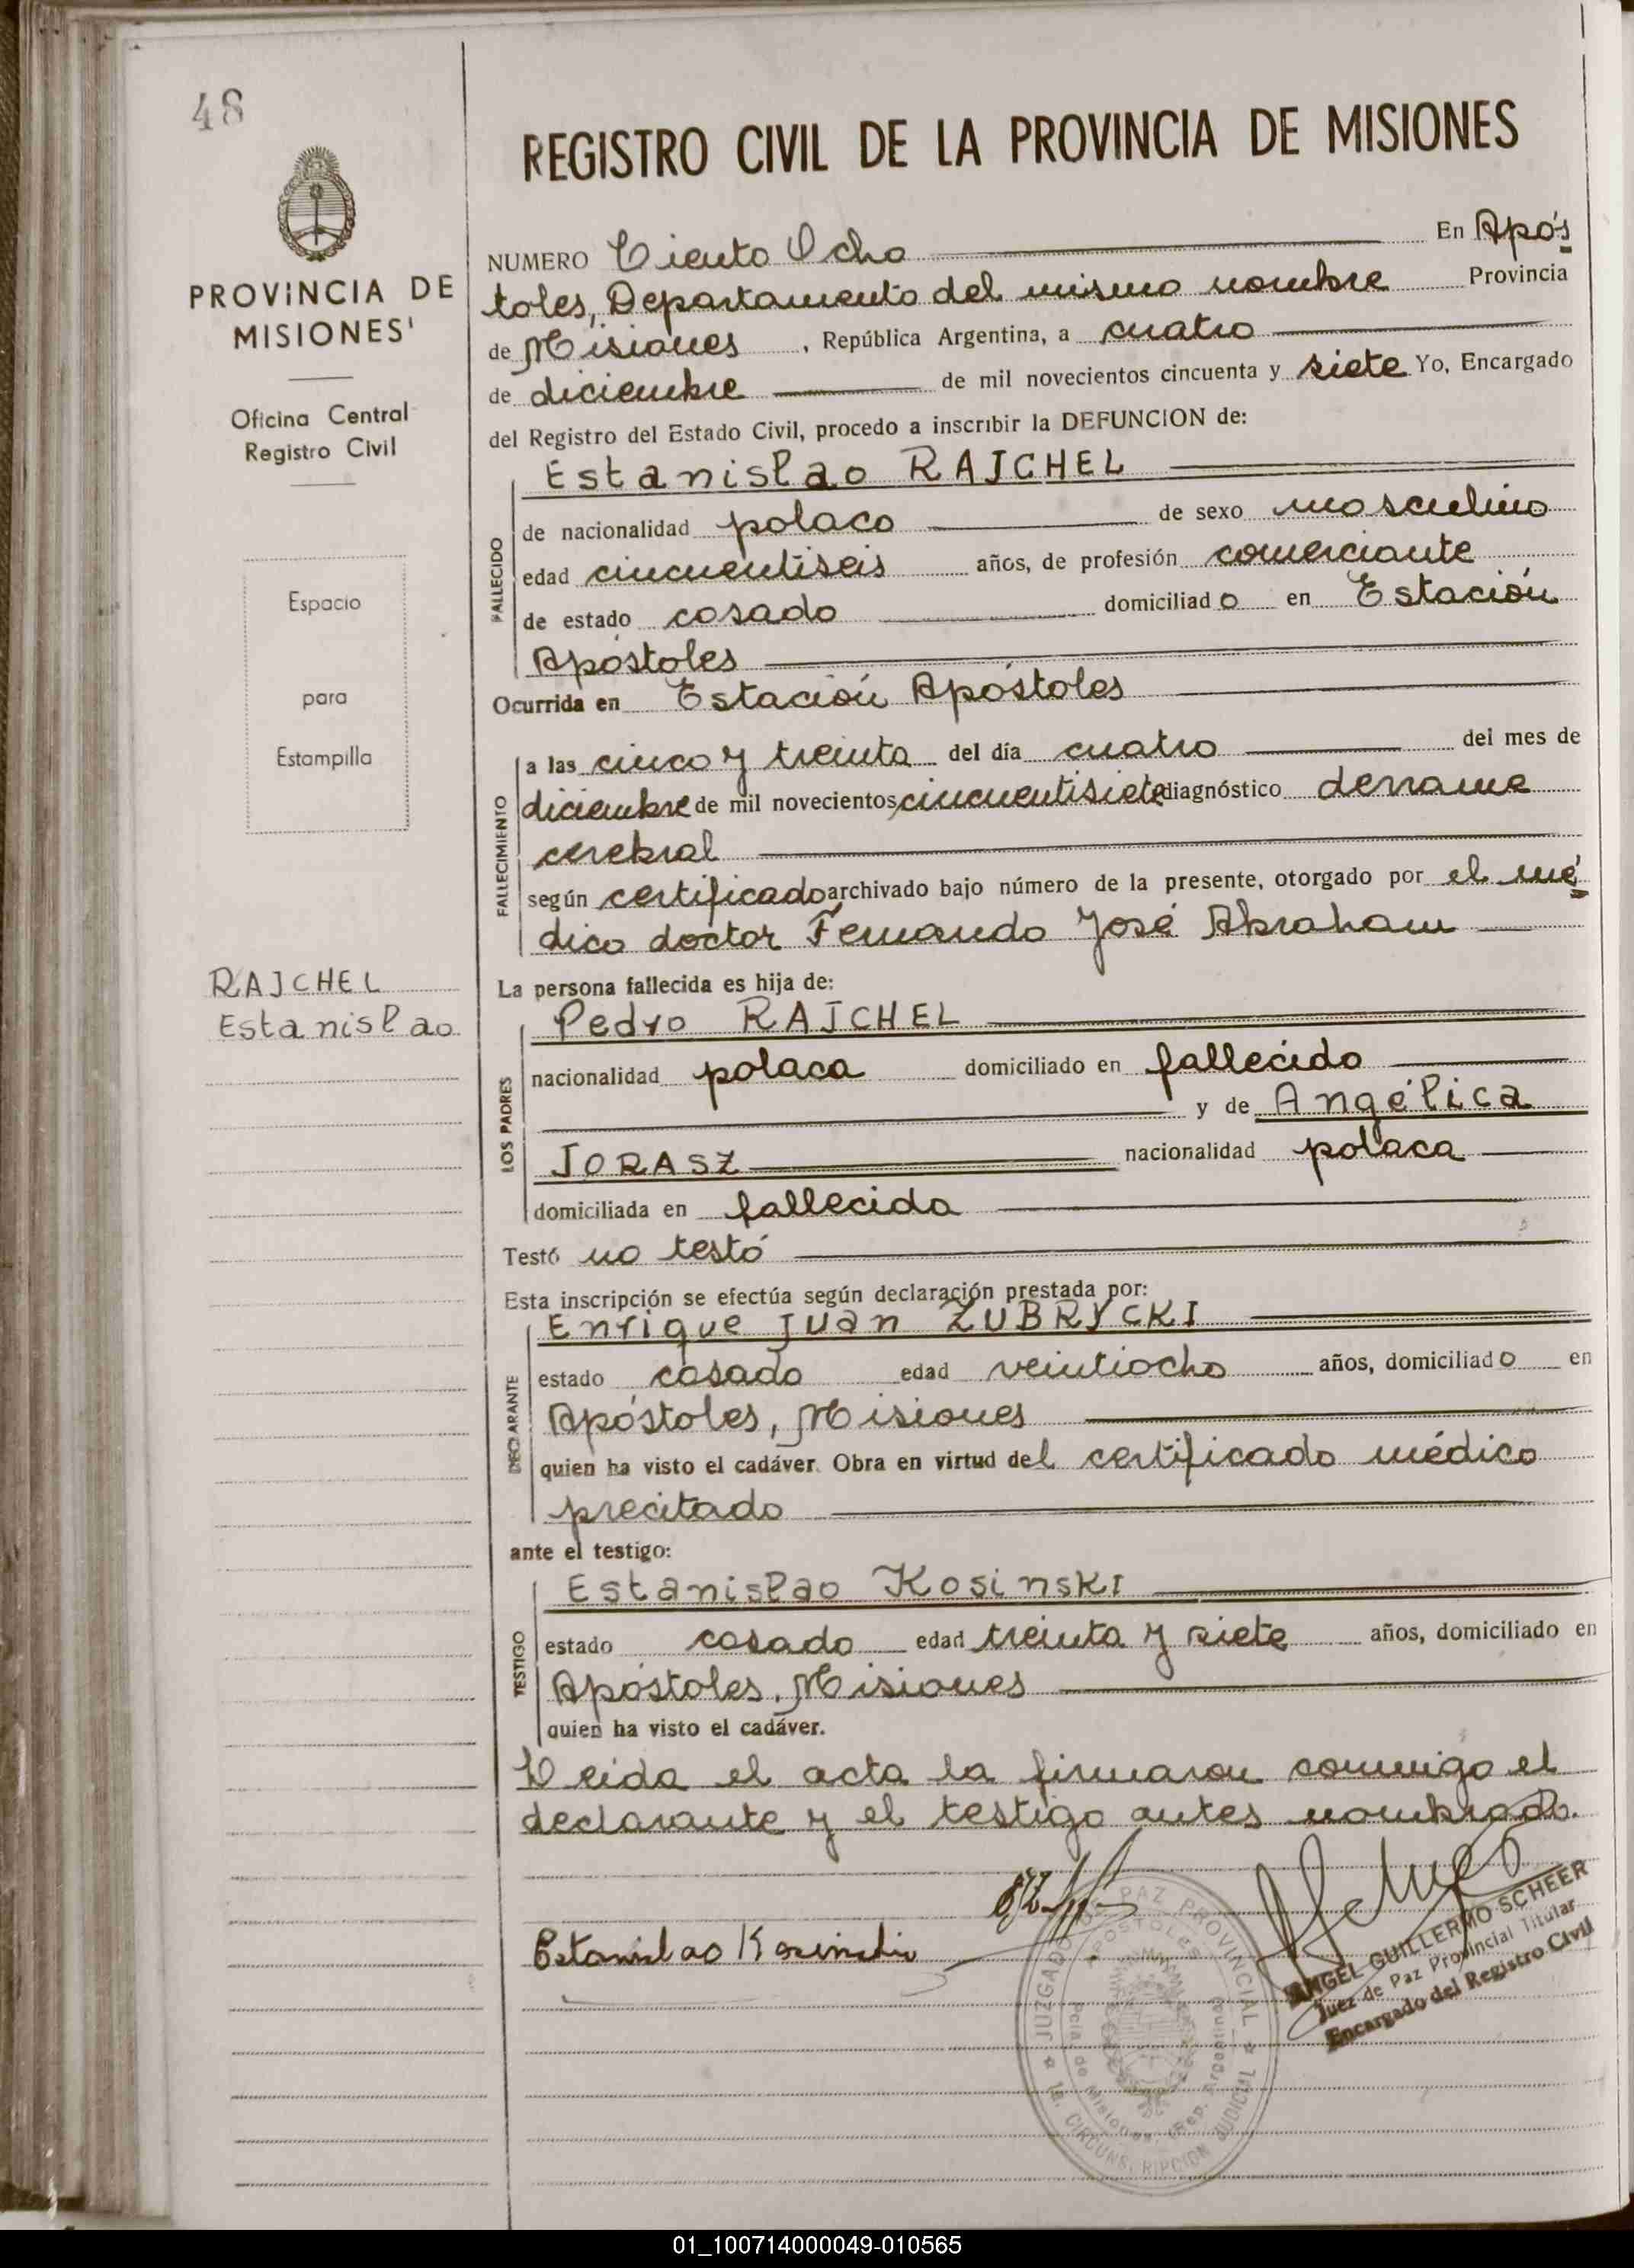 48
PROVINCIA DE
MISIONES'
Oficina Central
Registro Civil
Espacio
para
Estampilla
RAJCHEL
Estanislao
REGISTRO CIVIL DE LA PROVINCIA DE MISIONES
NUMERO Ciento Ocho En Após
toles, Departamento del mismo nombre Provincia
de Misiones, República Argentina, a cuatro
de diciembre de mil novecientos cincuenta y siete Yo, Encargado
del Registro del Estado Civil, procedo a inscribir la DEFUNCION de:
FALLECIDO
Estanislao RAJCHEL
de nacionalidad polaco de sexo masculino
edad cincuentiseis años, de profesión comerciante
de estado casado domiciliado en Estación
Apóstoles
Ocurrida en Estación Apóstoles
FALLECIMIENTO
a las cinco y treinta del día cuatro del mes de
diciembre de mil novecientos cincuentisiete diagnóstico derrame
cerebral
según certificado archivado bajo número de la presente, otorgado por el mé
dico doctor Fernando José Abraham
La persona fallecida es hija de:
LOS PADRES
Pedro RAJCHEL
nacionalidad polaca domiciliado en fallecido
y de Angélica
JORASZ nacionalidad polaca
domiciliada en fallecida
Testó no testó
Esta inscripción se efectúa según declaración prestada por:
DECLARANTE
Enrique Juan ZUBRYCKI
estado casado edad veintiocho años, domiciliado en
Apóstoles, Misiones
quien ha visto el cadáver. Obra en virtud del certificado médico
precitado
ante el testigo:
TESTIGO
Estanislao Kosinski
estado casado edad treinta y siete años, domiciliado en
Apóstoles, Misiones
quien ha visto el cadáver.
Leida el acta la firmaron conmigo el
declarante y el testigo antes nombrado.
Estanislao Kosinski
JUZGADO DE PAZ PROVINCIAL
APOSTOLES
Pcia. de Misiones Rep. Argentina
1a. CIRCUNSCRIPCION JUDICIAL
ANGEL GUILLERMO SCHEER
Juez de Paz Provincial Titular
Encargado del Registro Civil
01_100714000049-010565